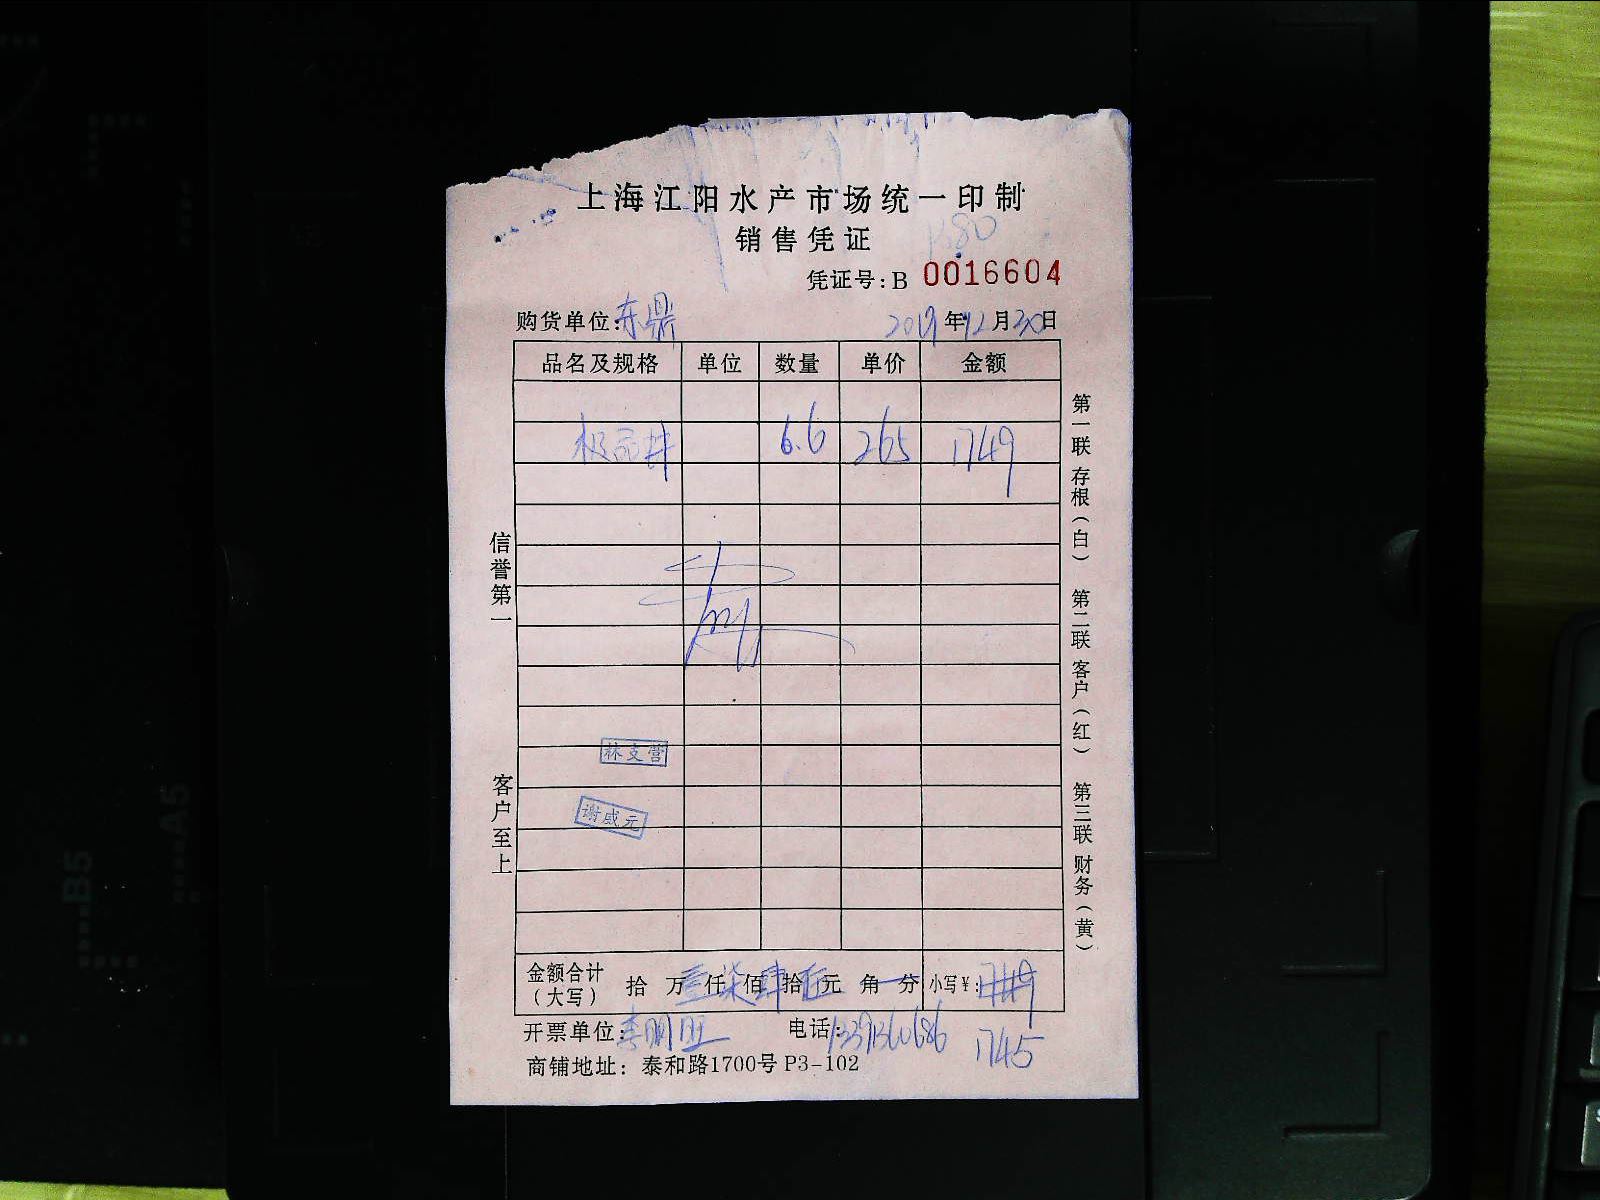 上海江阳水产市场统一印制
销售凭证
凭证号:B 0016604
购货单位:东鼎 2019年12月30日
品名及规格 单位 数量 单价 金额
极品井 6.6 265 1749
林支营
谢成元
金额合计(大写) 拾 万壹仟柒佰肆拾伍元 角 分 小写¥:1749
1745
开票单位:李明旺 电话:
商铺地址：泰和路1700号P3-102
信誉第一
客户至上
第一联 存根(白) 第二联 客户(红) 第三联 财务(黄)
B5
A5